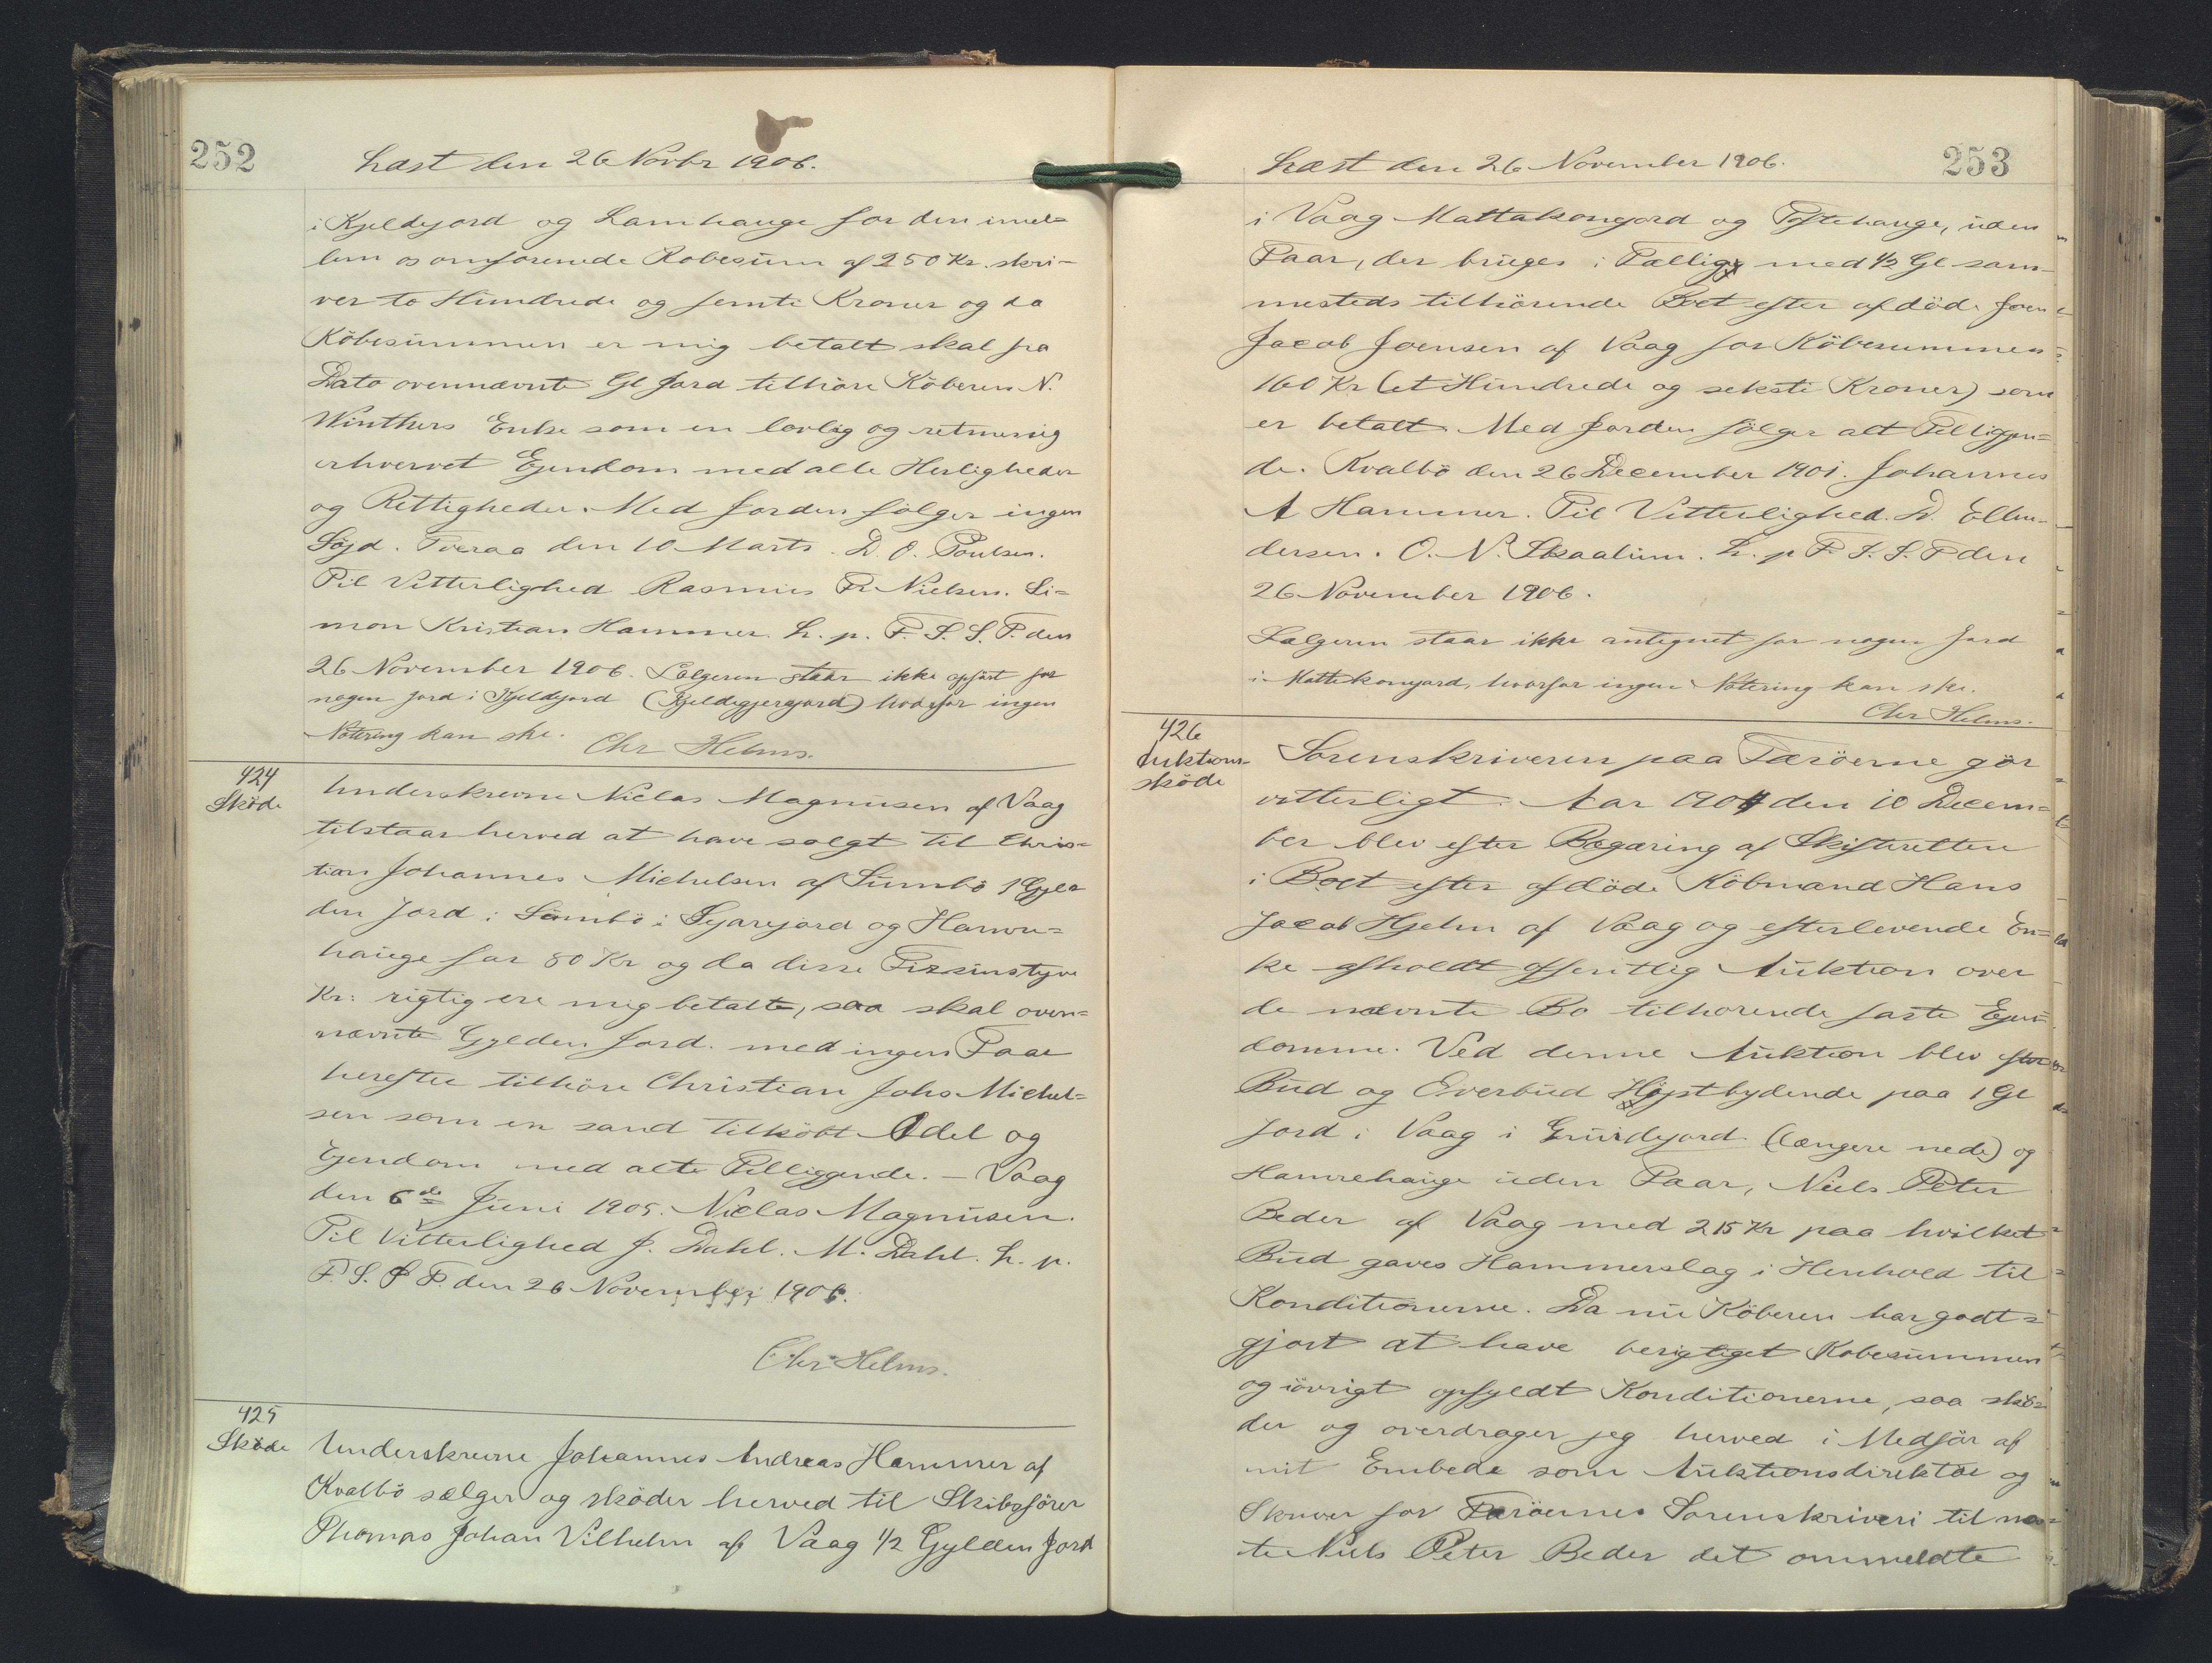 252
Læst den 26 Novbr 1906.
i Kjeldejord og Lamhauge for den imel=
lem os omforenede Kobesum af 250 Kr. skri-
ver to Hundrede og femti Kroner og da
Köbesummen er mig betalt skal fra
Dato ovennævnte Gl Jord tilhöre Köberen N.
Winthers Enke som en lovlig og retmesig
erhvervet Ejendom med alle Herligheder
og Rettigheder. Med Jorden fölger ingen
Söjd. Tveraa den 10 Marts. D. O. Poulsen.
Til Vitterlighed Rasmus Fr. Nielsen. Si=
mon Kristian Hammer. L. p. F. S. S. T. den
26 November 1906. Sælgeren staar ikke opfört for
nogen jord i Kjeldejord (Kjeldegjerajord) hvorfor ingen
Notering kan ske. Chr Helms.
424
Sköde
Underskrevne Niclas Magnusen af Vaag
tilstaar herved at have solgt til Chris=
tian Johannes Michelsen af Sumbö 1 Gyl=
den Jord i Sumbö i Gjarejord og Hamre=
hauge for 80 Kr og da disse Firsinstyve
Kr: rigtig ere mig betalte, saa skal oven=
nævnte Gylden Jord. med ingen Faar
herefter tilhöre Christian Johs Michel=
sen som en sand tilköbt Odel og
Ejendom med alt Tilliggende. — Vaag
den 6de Juni 1905. Niclas Magnusen.
Til Vitterlighed J. Dahl. M. Dahl. L. p.
F. S. S T. den 26 November 1906.
Chr Helms.
425
Sköde
Underskrevne Johannes Andreas Hammer af
Kvalbö sælger og sköder herved til Skibsförer
Thomas Johan Vilhelm af Vaag 1/2 Gylden Jord
Læst den 26 November 1906.
253
i Vaag Mattakongjord og Toftehauge, uden
Faar, der bruges i Fællig med 1/2 Gl sam-
mesteds tilhörende Boet efter afdöde Joen
Jacob Joensen af Vaag for Köbesummen
160 Kr (et Hundrede og seksti Kroner) som
er betalt. Med Jorden fölger alt Tilliggen=
de. Kvalbö den 26 December 1901. Johannes
A Hammer. Til Vitterlighed. D. Ellen-
dersen. O. N. Skaalum. L. p F. S. S. T den
26 November 1906.
Sælgeren staar ikke antegnet for nogen Jord
i Mattekongjord, hvorfor ingen Notering kan ske.
Chr Helms.
426
Auktions-
sköde
Sorenskriveren paa Færöerne gör
vitterligt. Aar 1904 den 10 Decem=
ber blev efter Begæring af Skifteretten
i Boet efter afdöde Köbmand Hans
Jacob Hjelm af Vaag og efterlevende En=
ke afholdt offentlig Auktion over
de nævnte Bo tilhorende faste Ejen=
domme. Ved denne Auktion blev efter
Bud og Overbud Höjstbydende paa 1 Gl
Jord i Vaag i Gruidejord (længere nede) og
Hamrehauge uden Faar, Niels Peter
Beder af Vaag med 215 Kr paa hvilket
Bud gaves Hammerslag i Henhold til
Konditionerne. Da nu Köberen har godt=
gjort at have berigtiget Kobesummen
og iövrigt opfyldt Konditionerne, saa skö=
der og overdrager jeg herved i Medför af
mit Embede som Auktionsdirektör og
Skriver for Færöernes Sorenskriveri til næn=
te Niels Peter Beder det ommeldte